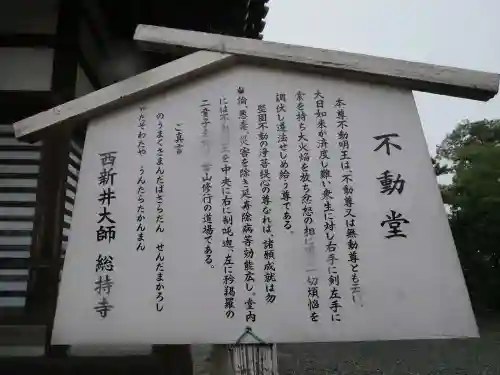 不動堂
本尊不動明王は、不動尊又は無動尊とも云い、
大日如来が済度し難い衆生に対し右手に剣左手に
索を持ち大火焔を放ち忿怒の相に 一切煩悩を
調伏し遵法せしめ給う尊である。
堅固不動の浄菩提心の尊なれば、諸願成就は勿
倫、悪毒、災害を除き延寿除病等効能広し。堂内
には不動 王を中央に右に制吒迦、左に矜羯羅の
二童子を 当山修行の道場である。
ご真言
のうまくさまんだばさらだん せんだまかろし
やだそわたや うんたらたかんまん
西新井大師 總持寺